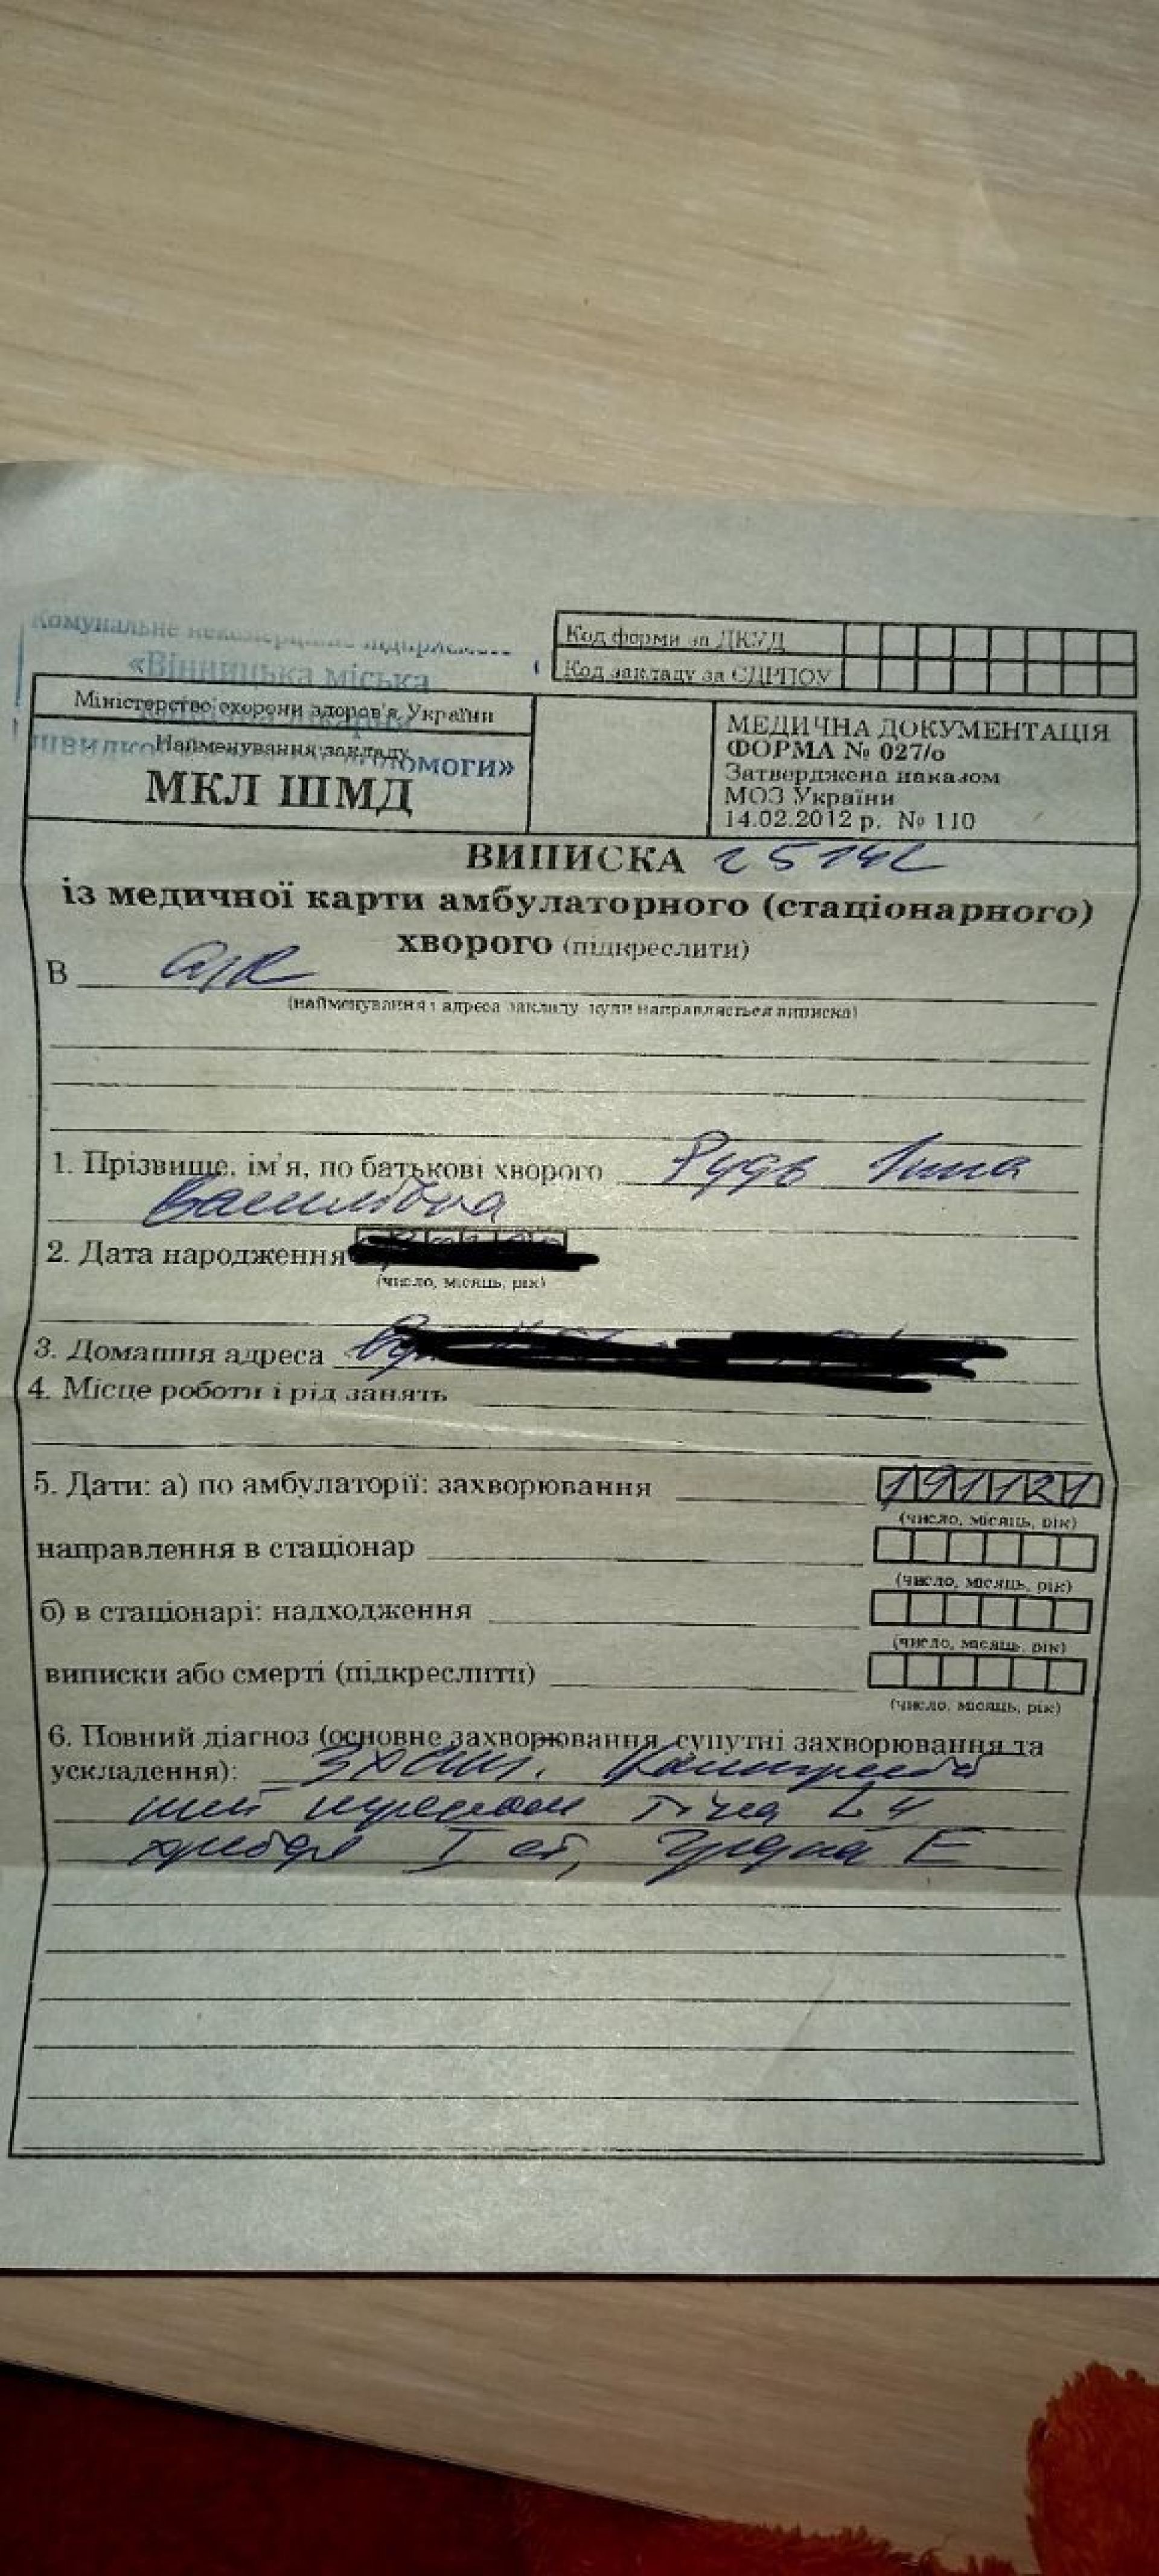 Комунальне некомерційне підприємство
«Вінницька міська
швидко допомоги»
Код форми за ДКУД
Код закладу за ЄДРПОУ
Міністерство охорони здоров'я України
Найменування закладу
МКЛ ШМД
МЕДИЧНА ДОКУМЕНТАЦІЯ
ФОРМА № 027/о
Затверджена наказом
МОЗ України
14.02.2012 р. № 110
ВИПИСКА 25142
із медичної карти амбулаторного (стаціонарного)
хворого (підкреслити)
В
(найменування і адреса закладу куди направляється виписка)
1. Прізвище, ім'я, по батькові хворого Рудь Інна
Василівна
2. Дата народження
(число, місяць, рік)
3. Домашня адреса
4. Місце роботи і рід занять
5. Дати: а) по амбулаторії: захворювання 191121
(число, місяць, рік)
направлення в стаціонар
(число, місяць, рік)
б) в стаціонарі: надходження
(число, місяць, рік)
виписки або смерті (підкреслити)
(число, місяць, рік)
6. Повний діагноз (основне захворювання, супутні захворювання та
ускладення): ЗХСТ. Компресій
ний перелом тіла L4
хребця I ст,